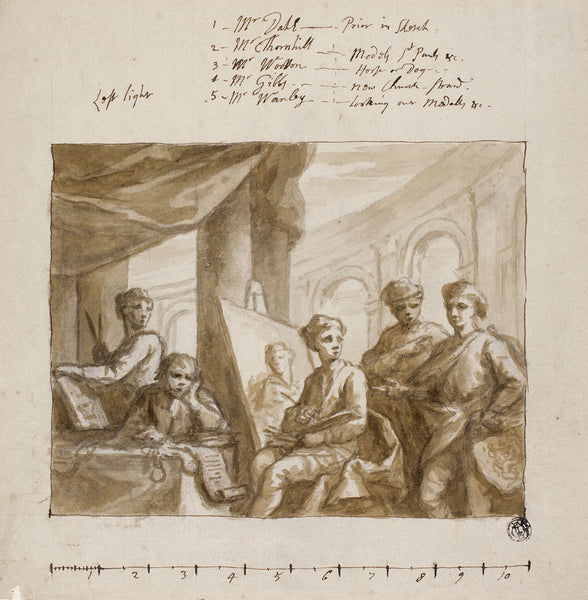 1 - Mr Dahl - Prior in Sketch.
2 - Mr Thornhill - Models St Pauls &c.
3 - Mr Wotton - Horse or Dog -
4 - Mr Gibbs - new Church Strand.
Left light
5 - Mr Wanley - looking over Medalls &c.
1 2 3 4 5 6 7 8 9 10